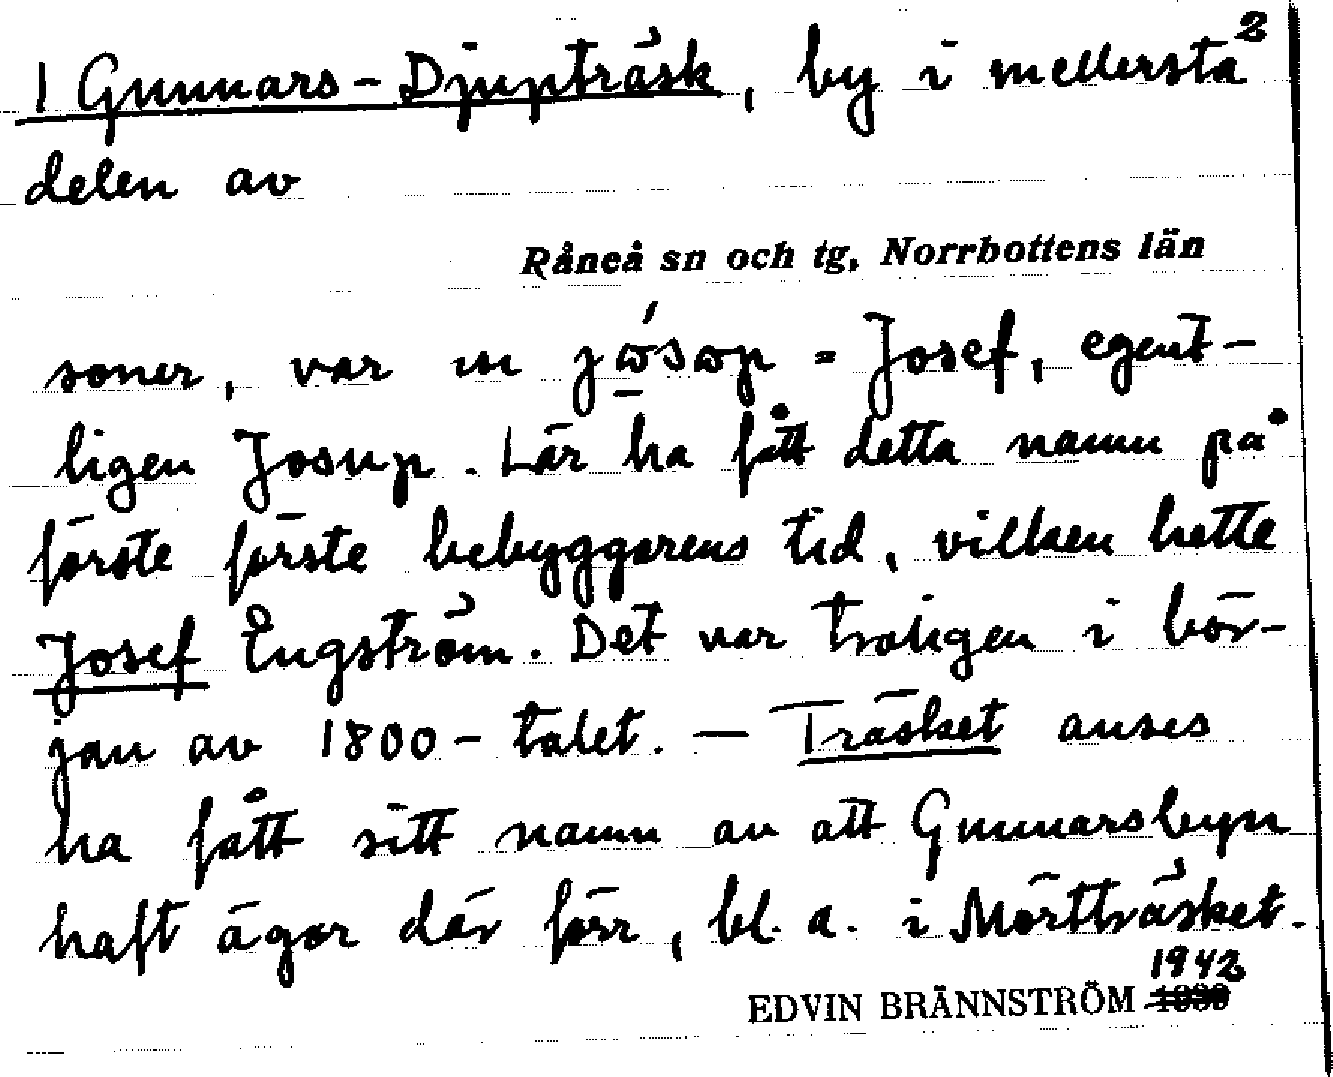 2
1 Gunnars-Djupträsk, by i mellersta
delen av
Råneå sn och tg, Norrbottens län
soner, var en = Josef, egent-
ligen Josup. Lär ha fått detta namn på
förste förste bebyggarens tid, vilken hette
Josef Engström. Det var troligen i bör-
jan av 1800-talet. — Träsket anses
ha fått sitt namn av att Gunnarsbyn
haft ägor där förr, bl. a. i Mörtträsket.
1942
EDVIN BRÄNNSTRÖM